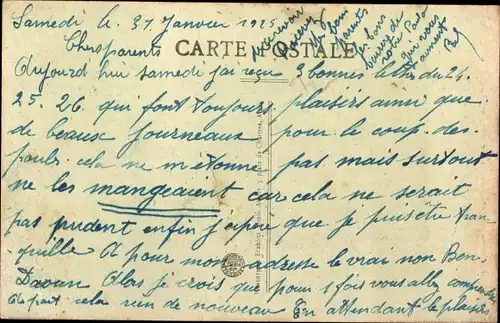 Samedi le 31 Janvier 1925
Chers parents
CARTE POSTALE
Aujourd hui samedi j'ai reçu 3 bonnes lettres du 24
25. 26 qui font toujours plaisirs ainsi que
de beaux journeaux pour le coup des
poules cela ne m'etonne pas mais surtout
ne les mangeaient car cela ne serait
pas prudent enfin j'espère que je puis être tran
quille A pour mon adresse le vrai non Ben
Daoan Alors je crois que pour 1 fois vous allez comprendre
A part cela rien de nouveau En attendant le plaisirs
Recevez
bons
parents
bons
baisers de
votre
qui vous
aiment